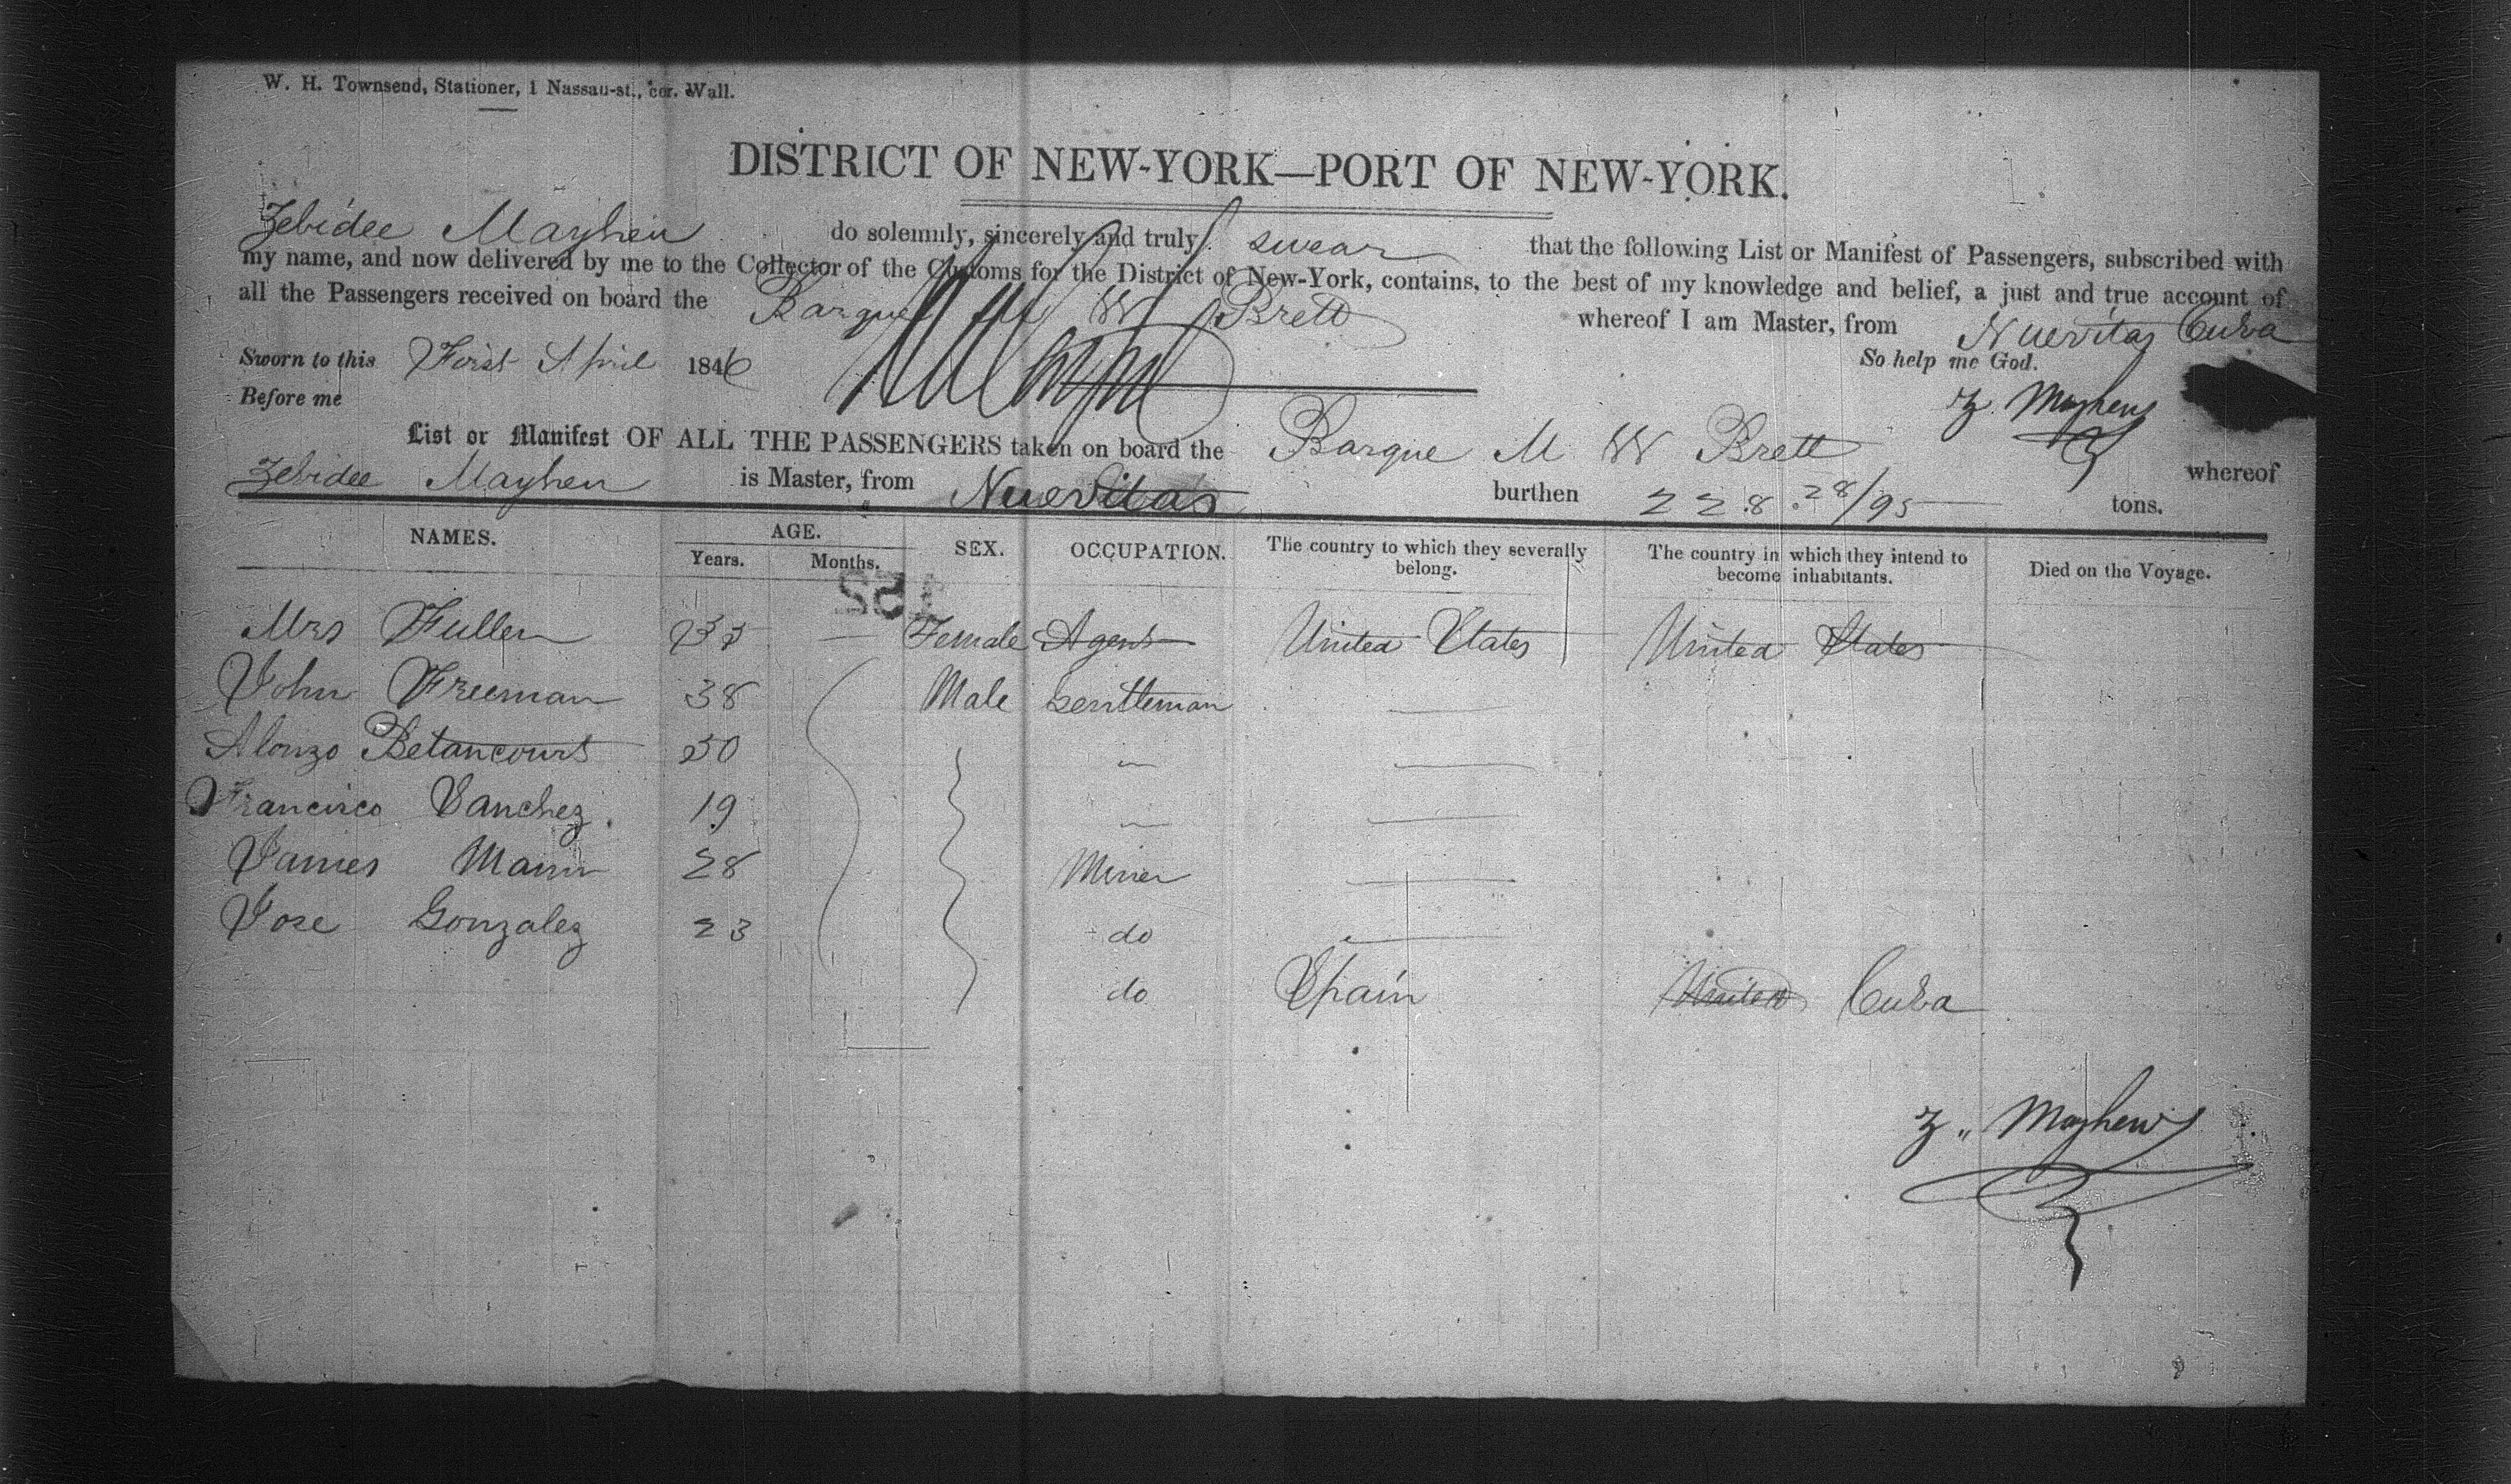 W. H. Townsend, Stationer, 1 Nassau-st., cor. Wall.
DISTRICT OF NEW-YORK—PORT OF NEW-YORK.
Zebidee Mayhew do solemnly, sincerely and truly swear that the following List or Manifest of Passengers, subscribed with
my name, and now delivered by me to the Collector of the Customs for the District of New-York, contains, to the best of my knowledge and belief, a just and true account of
all the Passengers received on board the Barque M W Brett whereof I am Master, from Nuevitas Cuba
Sworn to this First April 1846 So help me God.
Before me Z. Mayhew
List or Manifest OF ALL THE PASSENGERS taken on board the Barque M W Brett whereof
Zebidee Mayhew is Master, from Nuevitas burthen 228.28/95 tons.
NAMES. AGE. Years. Months. SEX. OCCUPATION. The country to which they severally belong. The country in which they intend to become inhabitants. Died on the Voyage.
152
Mrs Fuller 33 — Female Agent United States United States
John Freeman 38 Male Gentleman —
Alonzo Betancourt 50 " —
Francisco Sanchez. 19 " —
James Mann 28 Miner —
Jose Gonzalez 23 do —
do Spain United Cuba
Z. Mayhew